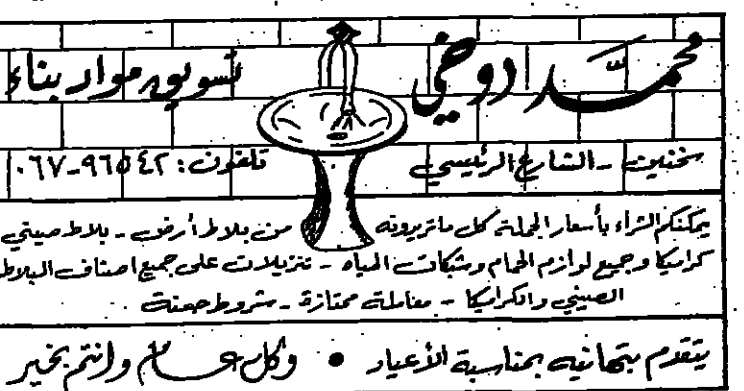 محمّد دوخي
تسويق مواد بناء
سخنين - الشارع الرئيسي
تلفون: ٩٦٥٤٢-٠٦٧
يمكنكم الشراء بأسعار الجملة كل ما تريدونه من بلاط أرض - بلاط صيني
كراميكا وجميع لوازم الحمام وشبكات المياه - تنزيلات على جميع اصناف البلاط
الصيني والكراميكا - معاملة ممتازة - شروط حسنة
يتقدم بتهانيه بمناسبة الأعياد • وكل عــام وانتم بخير